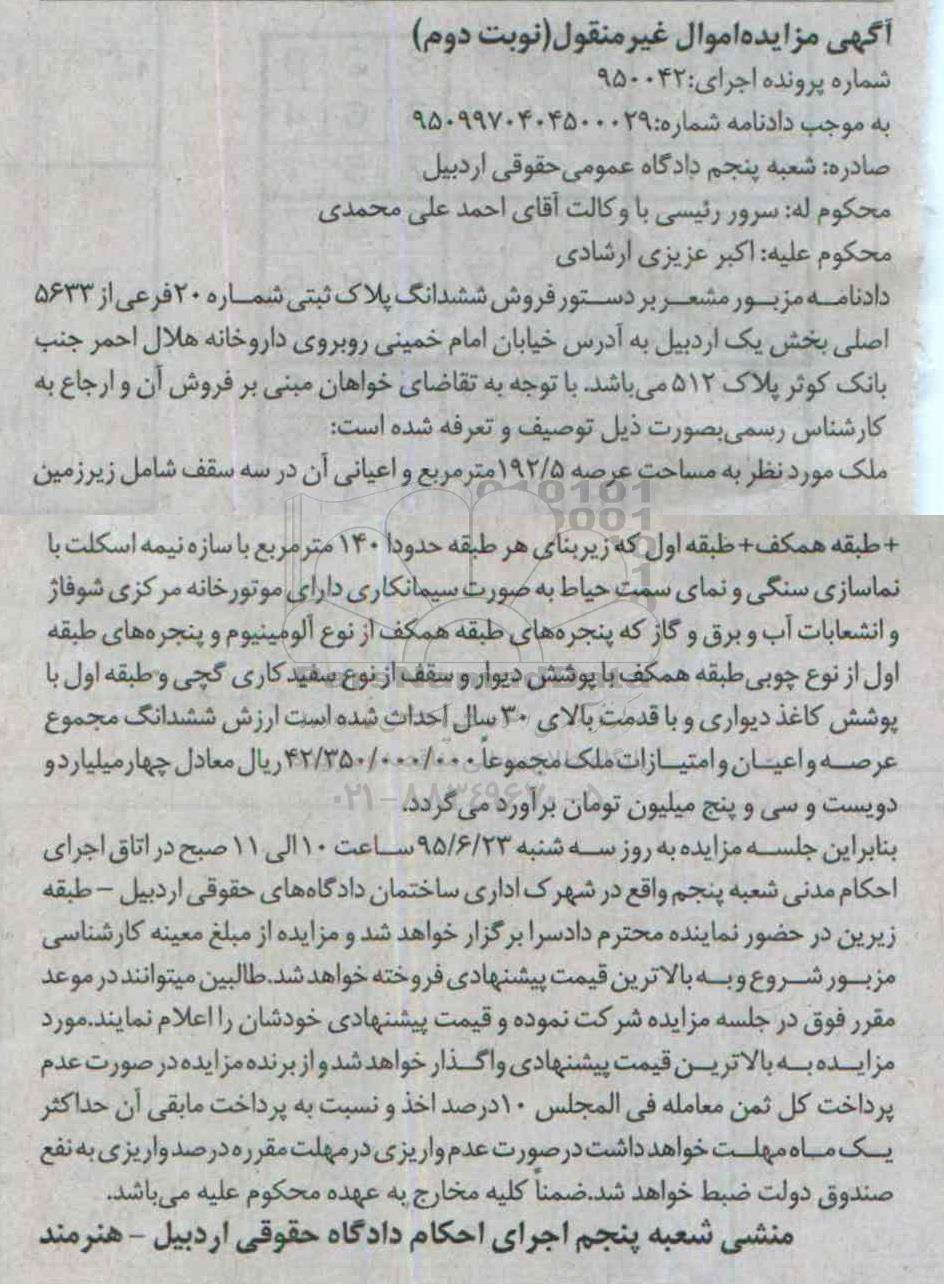 آگهی مزایده‌اموال غیرمنقول(نوبت دوم)
شماره پرونده اجرای:۹۵۰۰۴۲
به موجب دادنامه شماره:۹۵۰۹۹۷۰۴۰۴۵۰۰۰۲۹
صادره: شعبه پنجم دادگاه عمومی‌حقوقی اردبیل
محکوم له: سرور رئیسی با وکالت آقای احمد علی محمدی
محکوم علیه: اکبر عزیزی ارشادی
دادنامه مزبور مشعر بر دستور فروش ششدانگ پلاک ثبتی شماره ۲۰فرعی از ۵۶۳۳
اصلی بخش یک اردبیل به آدرس خیابان امام خمینی روبروی داروخانه هلال احمر جنب
بانک کوثر پلاک ۵۱۲ می‌باشد. با توجه به تقاضای خواهان مبنی بر فروش آن و ارجاع به
کارشناس رسمی‌بصورت ذیل توصیف و تعرفه شده است:
ملک مورد نظر به مساحت عرصه ۱۹۲/۵مترمربع و اعیانی آن در سه سقف شامل زیرزمین
+طبقه همکف+طبقه اول که زیربنای هر طبقه حدوداً ۱۴۰ مترمربع با سازه نیمه اسکلت با
نماسازی سنگی و نمای سمت حیاط به صورت سیمانکاری دارای موتورخانه مرکزی شوفاژ
و انشعابات آب و برق و گاز که پنجره‌های طبقه همکف از نوع آلومینیوم و پنجره‌های طبقه
اول از نوع چوبی‌طبقه همکف با پوشش دیوار و سقف از نوع سفید کاری گچی و طبقه اول با
پوشش کاغذ دیواری و با قدمت بالای ۳۰ سال احداث شده است ارزش ششدانگ مجموع
عرصه و اعیان و امتیازات ملک مجموعاً ۴۲/۳۵۰/۰۰۰/۰۰۰ریال معادل چهار میلیارد و
دویست و سی و پنج میلیون تومان برآورد می‌گردد.
بنابراین جلسه مزایده به روز سه شنبه ۹۵/۶/۲۳ساعت ۱۰الی ۱۱ صبح در اتاق اجرای
احکام مدنی شعبه پنجم واقع در شهرک اداری ساختمان دادگاه‌های حقوقی اردبیل – طبقه
زیرین در حضور نماینده محترم دادسرا برگزار خواهد شد و مزایده از مبلغ معینه کارشناسی
مزبور شروع و به بالاترین قیمت پیشنهادی فروخته خواهد شد.طالبین میتوانند در موعد
مقرر فوق در جلسه مزایده شرکت نموده و قیمت پیشنهادی خودشان را اعلام نمایند.مورد
مزایده به بالاترین قیمت پیشنهادی واگذار خواهد شد و از برنده مزایده در صورت عدم
پرداخت کل ثمن معامله فی المجلس ۱۰درصد اخذ و نسبت به پرداخت مابقی آن حداکثر
یک ماه مهلت خواهد داشت در صورت عدم واریزی در مهلت مقرره درصد واریزی به نفع
صندوق دولت ضبط خواهد شد.ضمناً کلیه مخارج به عهده محکوم علیه می‌باشد.
منشی شعبه پنجم اجرای احکام دادگاه حقوقی اردبیل – هنرمند